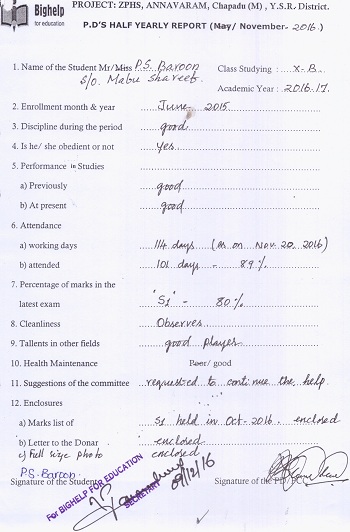 Bighelp
for education
PROJECT: ZPHS, ANNAVARAM, Chapadu (M), Y.S.R. District.
P.D'S HALF YEARLY REPORT (May/ November- 2016)
1. Name of the Student Mr/Miss P.S. Baroon Class Studying : X-B
S/o. Mabu Shareef. Academic Year : 2016-17.
2. Enrollment month & year June- 2015
3. Discipline during the period good
4. Is he/ she obedient or not yes
5. Performance in Studies
a) Previously good
b) At present good
6. Attendance
a) working days 114 days (As on Nov 20, 2016)
b) attended 101 days - 89%
7. Percentage of marks in the
latest exam "S1" - 80%
8. Cleanliness Observes
9. Tallents in other fields good player
10. Health Maintenance Poor/ good
11. Suggestions of the committee requested to continue the help
12. Enclosures
a) Marks list of S1 held in Oct-2016. enclosed
b) Letter to the Donar enclosed
c) Full size photo enclosed
P.S. Baroon
Signature of the Student
For BIGHELP FOR EDUCATION
SECRETARY
09/12/16
Signature of the PD/